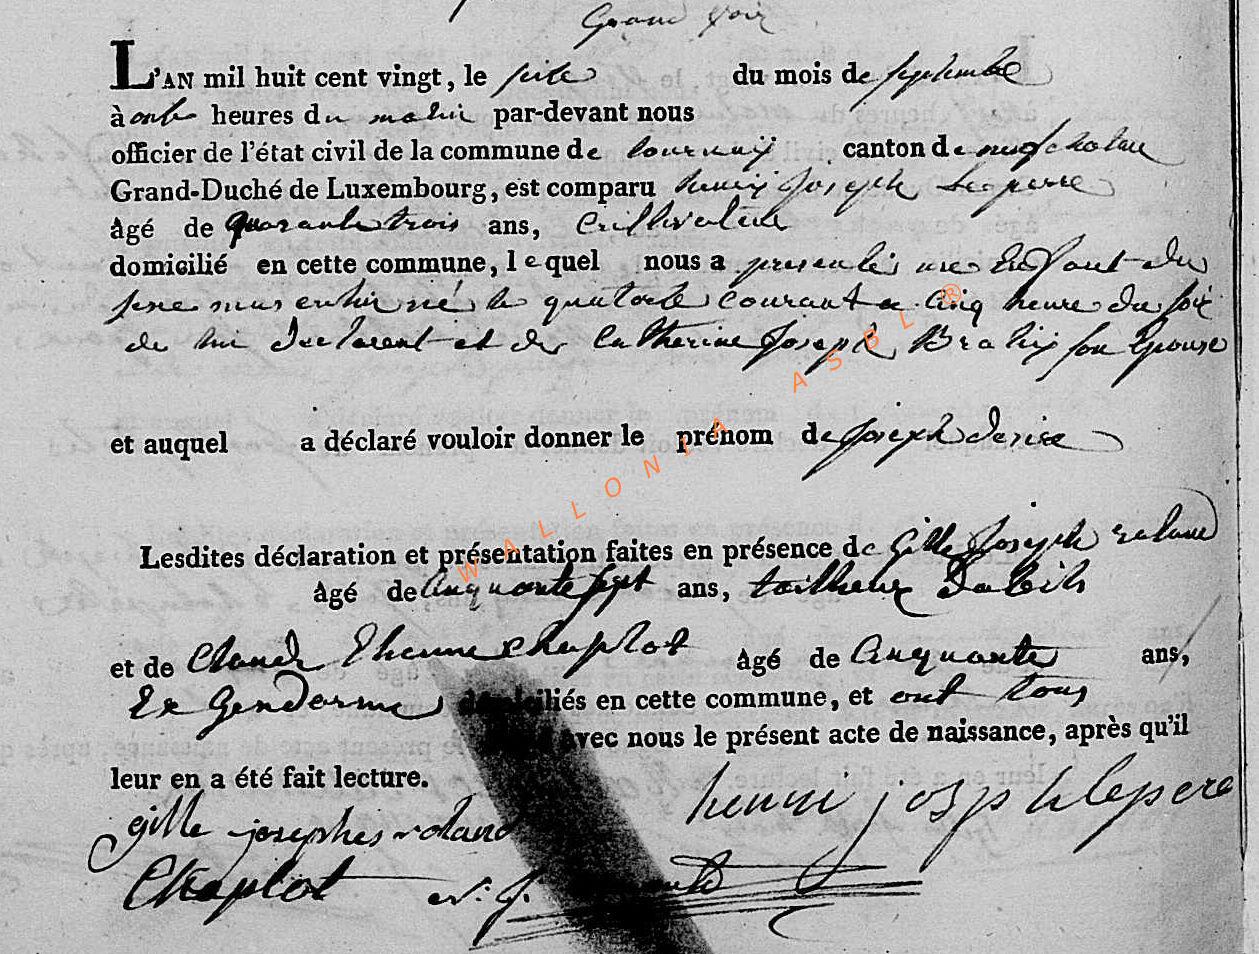 Grand voir
L'AN mil huit cent vingt, le seize du mois de septembre
à onze heures du matin par-devant nous
officier de l'état civil de la commune de tournay canton de neufchateau
Grand-Duché de Luxembourg, est comparu henry Joseph Lepere
âgé de quarante trois ans, cultivateur
domicilié en cette commune, lequel nous a presentés une Enfant du
sexe masculin né le quatorze courant a cinq heure du soir
de lui declarent et de Catherine Joseph Braliy son Epouse
et auquel a déclaré vouloir donner le prénom de Joseph desire
Lesdites déclaration et présentation faites en présence de Gille Joseph roland
âgé de Cinquante sept ans, tailleur dabits
et de Claude Etienne Chaplot âgé de Cinquante ans,
Ex Gendarme domiciliés en cette commune, et ont tous
avec nous le présent acte de naissance, après qu'il
leur en a été fait lecture.
gille josephe roland henri josph lepere
Chaplot N. J.
WALLONIA ASBL ®